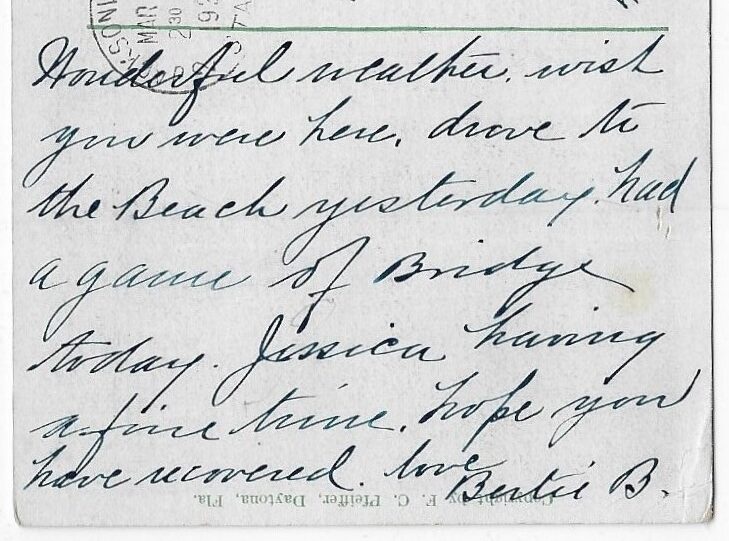 MAR
2 30
193
STA
Wonderful weather, wish
you were here, drove to
the Beach yesterday, had
a game of Bridge
today. Jessica having
a fine time, hope you
have recovered. love
Bertie B.
Copyright by F. C. Pfeiffer, Daytona, Fla.